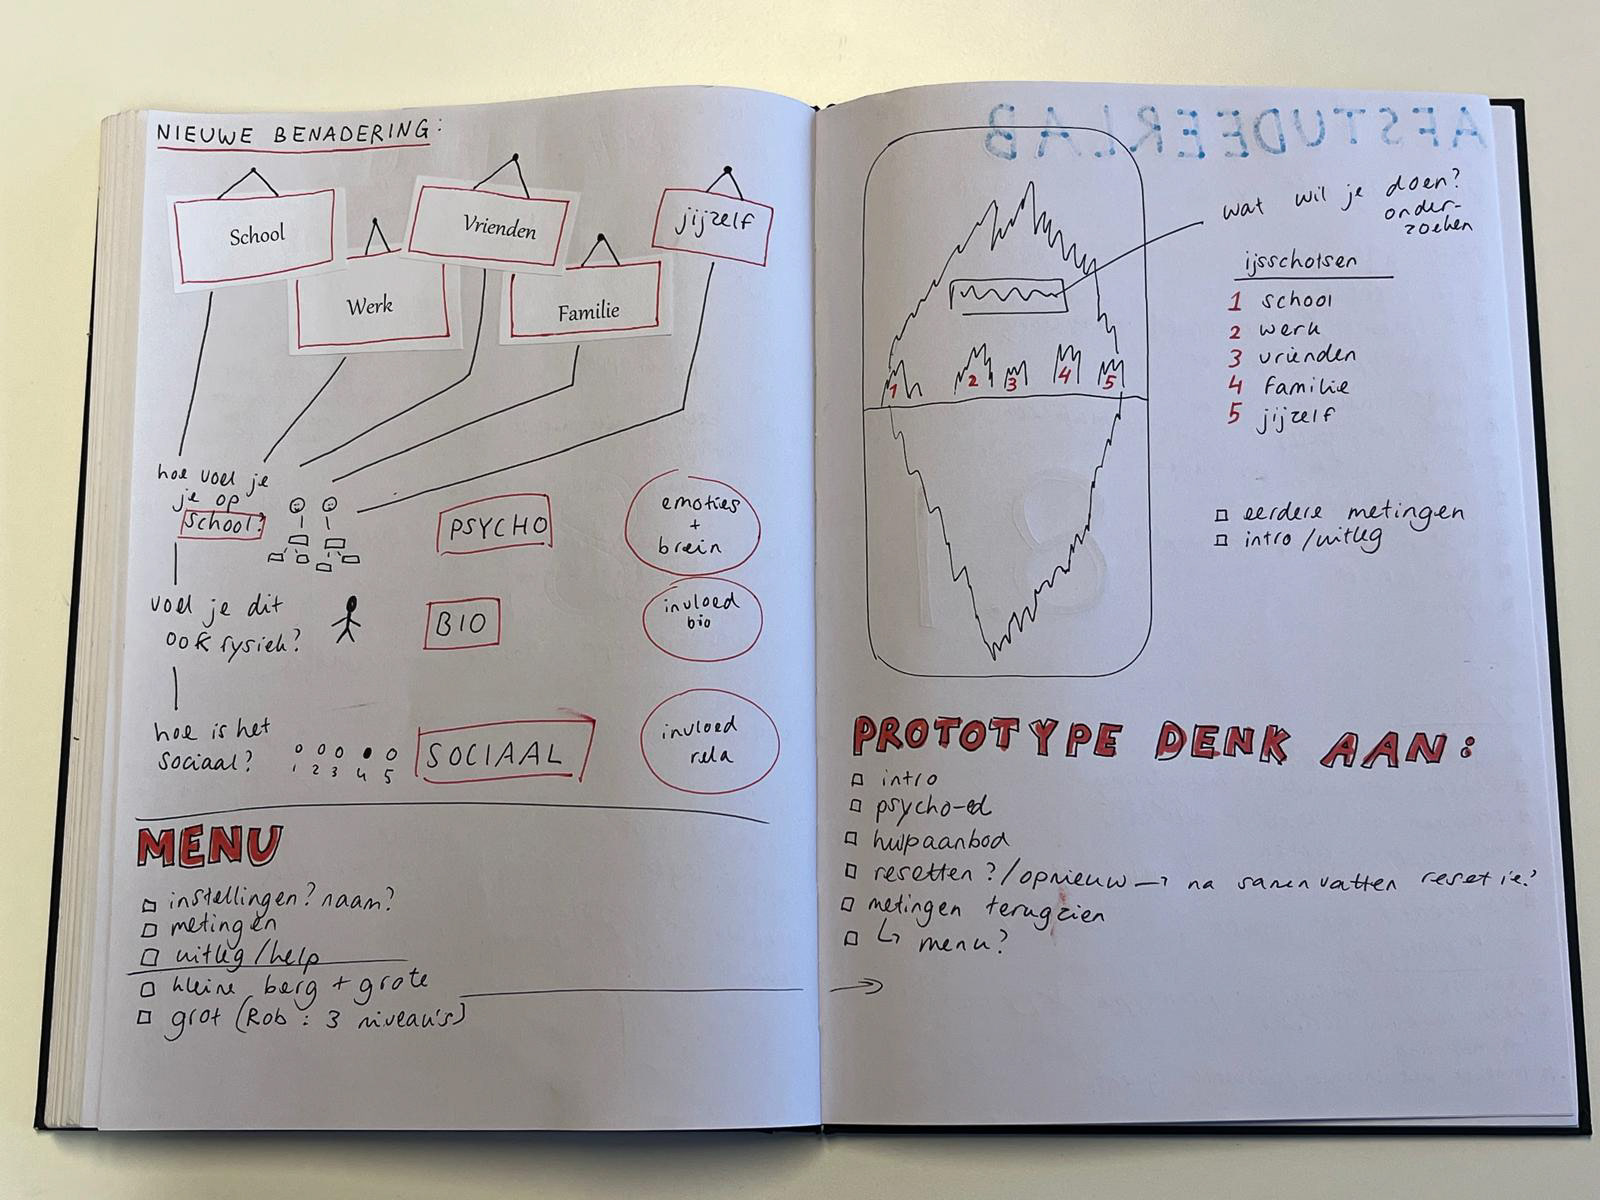 NIEUWE BENADERING:
School
Werk
Vrienden
Familie
jijzelf
hoe voel je
je op
school?
PSYCHO
emoties
+
brein
voel je dit
ook fysiek?
BIO
invloed
bio
hoe is het
sociaal?
1 2 3 4 5
SOCIAAL
invloed
rela
MENU
instellingen? naam?
metingen
uitleg/help
kleine berg + grote
grot (Rob: 3 niveau's)
AFSTUDEERLAB
wat wil je doen?
onder-
zoeken
ijsschotsen
1 school
2 werk
3 vrienden
4 familie
5 jijzelf
1 2 3 4 5
eerdere metingen
intro/uitleg
PROTOTYPE DENK AAN:
intro
psycho-ed
hulpaanbod
resetten?/opnieuw → na samenvatten reset ie?
metingen terugzien
↳ menu?
→